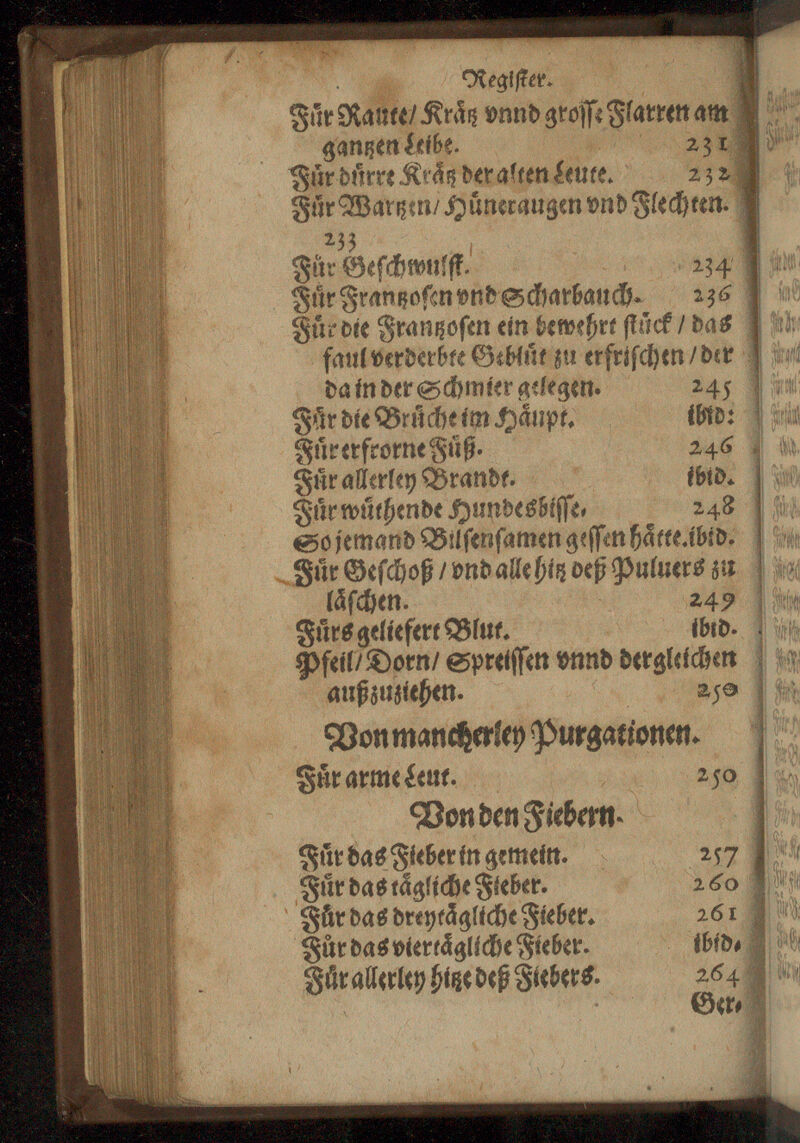 Register.
Für Raute/ Krätz vnnd grosse Flarren am
gantzen Leibe. 231
Für dürre Krätz der alten Leute. 232
Für Wartzen/ Hüneraugen vnd Flechten.
233
Für Geschwulst. 234
Für Frantzosen vnd Scharbauch. 236
Für die Frantzosen ein bewehrt stück / das
faul verderbte Geblüt zu erfrischen / der
da in der Schmier gelegen. 245
Für die Brüche im Häupt. ibid:
Für erfrorne Füß. 246
Für allerley Brandt. ibid.
Für wüthende Hundesbisse. 248
So jemand Bilsensamen gessen hätte. ibid.
Für Geschoß / vnd alle hitz deß Puluers zu
läschen. 249
Fürs geliefert Blut. ibid.
Pfeil/ Dorn/ Spreissen vnnd dergleichen
außzuziehen. 250
Von mancherley Purgationen.
Für arme Leut. 250
Von den Fiebern.
Für das Fieber in gemein. 257
Für das tägliche Fieber. 260
Für das dreytägliche Fieber. 261
Für das viertägliche Fieber. ibid.
Für allerley hitze deß Fiebers. 264
Ger-